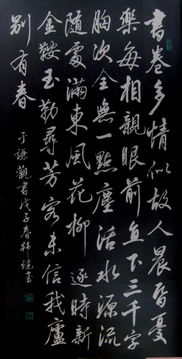 書卷多情似故人晨昏憂
樂每相親眼前直下三千字
胸次全無一點塵活水源流
隨處滿東風花柳逐時新
金鞍玉勒尋芳客未信我廬
別有春
于謙觀書戊子春